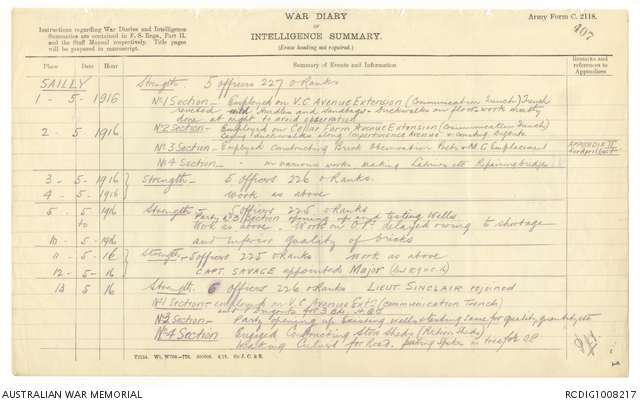 WAR DIARY
OF
INTELLIGENCE SUMMARY.
(Erase heading not required.)
Army Form C. 2118.
Instructions regarding War Diaries and Intelligence
Summaries are contained in F. S. Regs., Part II.
and the Staff Manual respectively. Title pages
will be prepared in manuscript.
Place Date Hour Summary of Events and Information Remarks and references to Appendices
SAILLY
1 - 5 - 1916
Strength 5 officers 227 o Ranks
No 1 Section - Employed on V.C Avenue Extension (Communication Trench) Trench
reveted with Hurdles and Sandbags - Duckwalks on floor work mostly
done at night to avoid observation
2 - 5 - 1916
No 2 Section - Employed on Cellar Farm Avenue Extension (Communication Trench)
Laying duckwalks along
No 3 Section - Employed Constructing Brick Observation Posts & M.G Emplacement
APPENDIX II
No 4 Section - - on various works making Latrines etc Repairing bridges
3 - 5 - 1916 Strength - 5 officers 226 o Ranks.
4 - 5 - 1916 Work as above
5 - 5 - 1916 Strength - 5 officers 225 o Ranks
to Party of 3 Section opening up and testing Wells
Work as above. Work on O.P. delayed owing to shortage
10 - 5 - 1916 and inferior quality of bricks
11 - 5 - 16 Strength - 5 officers 225 o Ranks Work as above
12 - 5 - 16 CAPT. SAVAGE appointed Major
13 5 16 Strength. 6 officers 226 o Ranks LIEUT SINCLAIR rejoined
No 1 Section - employed on V.C Avenue Extn (communication Trench)
and
No 3 Section - Party opening up Existing wells & testing same for quality quantity etc
No 4 Section Engaged Constructing
Making Culvert for Road.
AUSTRALIAN WAR MEMORIAL
RCDIG1008217